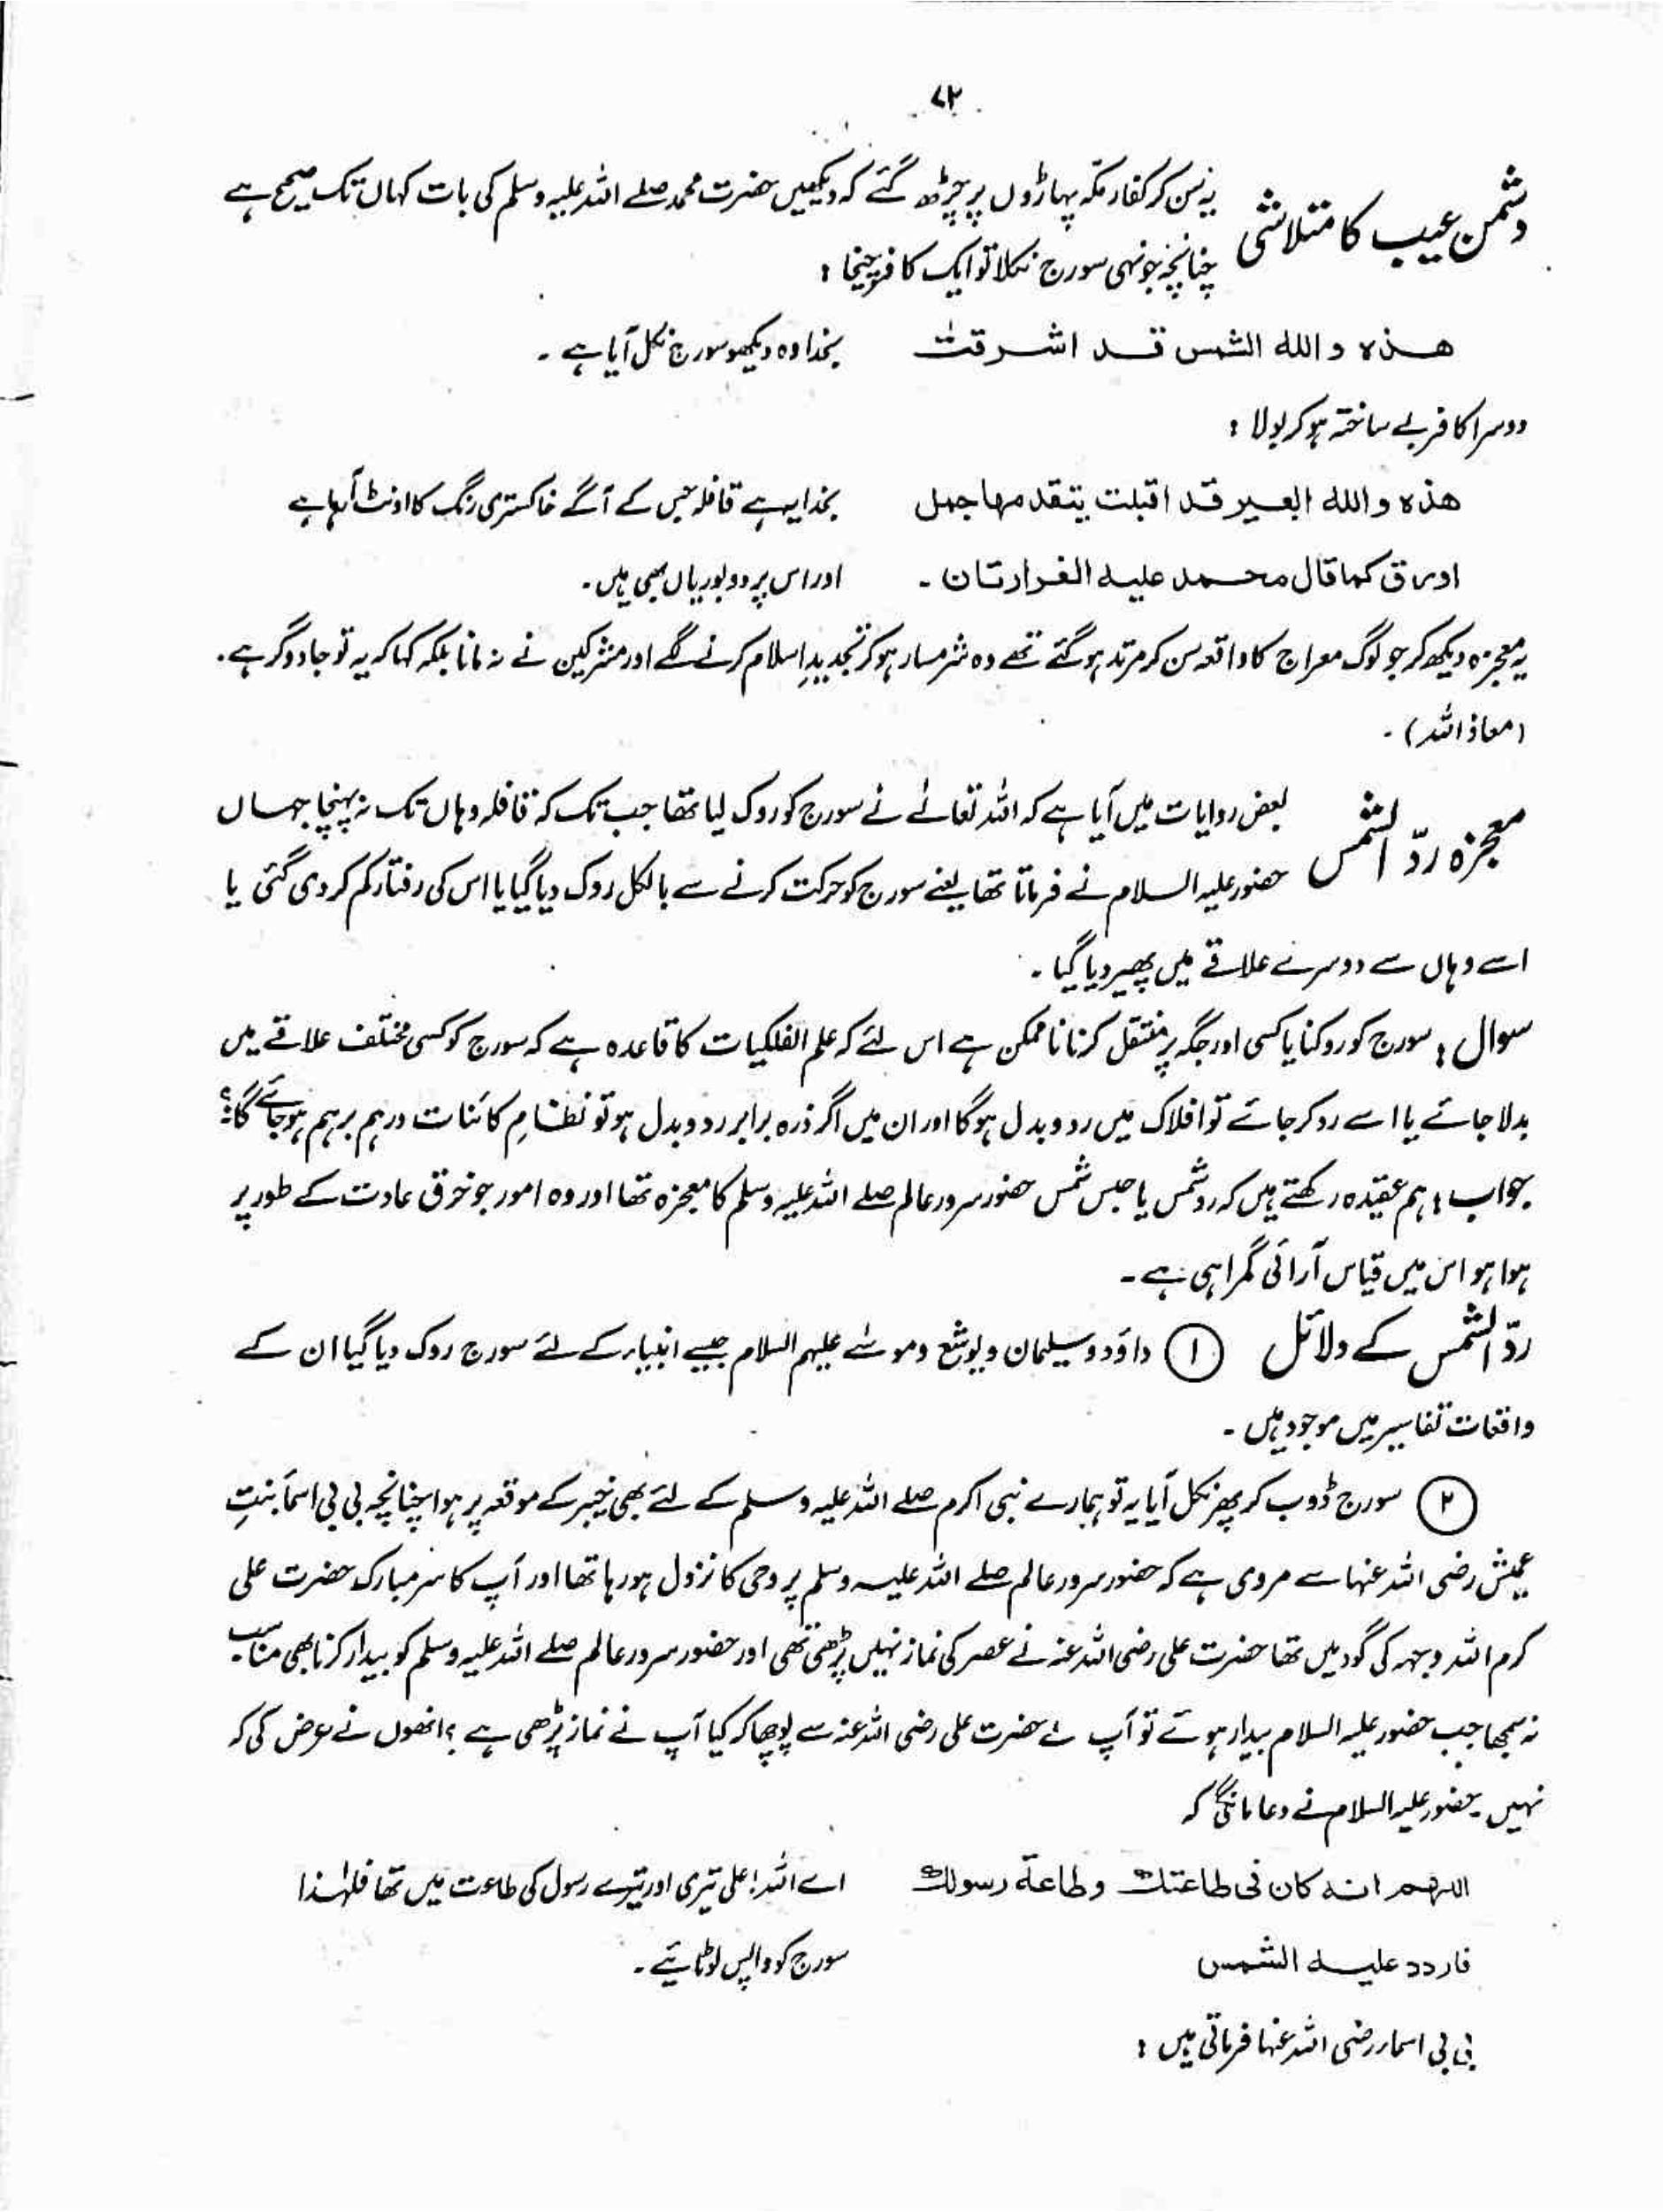 ۷۲
دشمن عیب کا متلاشی یہ سن کر کفار مکہ پہاڑوں پر چڑھ گئے کہ دیکھیں حضرت محمد صلے اللہ علیہ وسلم کی بات کہاں تک صحیح ہے
چنانچہ جونہی سورج نکلا تو ایک کافر چیخا :
هذه والله الشمس قد اشرقت بخدا وہ دیکھو سورج نکل آیا ہے ۔
دوسرا کافر بے ساختہ ہو کر بولا :
هذه والله العير قد اقبلت يتقدمها جمل بخدا یہ ہے قافلہ جس کے آگے خاکستری رنگ کا اونٹ آرہا ہے
اورق كما قال محمد عليه الغرارتان ۔ اور اس پر دو بوریاں بھی ہیں ۔
یہ معجزہ دیکھ کر جو لوگ معراج کا واقعہ سن کر مرتد ہو گئے تھے وہ شرمسار ہو کر تجدیدِ اسلام کرنے لگے اور مشرکین نے نہ مانا بلکہ کہا کہ یہ تو جادوگر ہے ۔
(معاذ اللہ) ۔
معجزہ ردّ الشمس بعض روایات میں آیا ہے کہ اللہ تعالےٰ نے سورج کو روک لیا تھا جب تک کہ قافلہ وہاں تک نہ پہنچا جہاں
حضور علیہ السلام نے فرماتا تھا یعنے سورج کو حرکت کرنے سے بالکل روک دیا گیا یا اس کی رفتار کم کر دی گئی یا
اسے وہاں سے دوسرے علاقے میں پھیر دیا گیا ۔
سوال : سورج کو روکنا یا کسی اور جگہ پر منتقل کرنا ناممکن ہے اس لئے کہ علم الفلکیات کا قاعدہ ہے کہ سورج کو کسی مختلف علاقے میں
بدلا جائے یا اسے رد کر جائے تو افلاک میں رد و بدل ہوگا اور ان میں اگر ذرہ برابر رد و بدل ہو تو نظامِ کائنات درہم برہم ہو جائے گا؟
جواب : ہم عقیدہ رکھتے ہیں کہ رد شمس یا حبس شمس حضور سرور عالم صلے اللہ علیہ وسلم کا معجزہ تھا اور وہ امور جو خرق عادت کے طور پر
ہوا ہو اس میں قیاس آرائی گمراہی ہے ۔
ردّ الشمس کے دلائل ① داؤد و سیلمان و یوشع و موسےٰ علیہم السلام جیسے انبیاء کے لئے سورج روک دیا گیا ان کے
واقعات تفاسیر میں موجود ہیں ۔
② سورج ڈوب کر پھر نکل آیا یہ تو ہمارے نبی اکرم صلے اللہ علیہ وسلم کے لئے بھی خیبر کے موقعہ پر ہوا چنانچہ بی بی اسمأ بنتِ
عمیش رضی اللہ عنہا سے مروی ہے کہ حضور سرور عالم صلے اللہ علیہ وسلم پر وحی کا نزول ہو رہا تھا اور آپ کا سر مبارک حضرت علی
کرم اللہ وجہہ کی گود میں تھا حضرت علی رضی اللہ عنہ نے عصر کی نماز نہیں پڑھی تھی اور حضور سرور عالم صلے اللہ علیہ وسلم کو بیدار کرنا بھی مناسب
نہ سمجھا جب حضور علیہ السلام بیدار ہوئے تو آپ نے حضرت علی رضی اللہ عنہ سے پوچھا کہ کیا آپ نے نماز پڑھی ہے ؟ انھوں نے عرض کی کہ
نہیں ۔ حضور علیہ السلام نے دعا مانگی کہ
اللهم انه كان فى طاعتك وطاعة رسولك اے اللہ! علی تیری اور تیرے رسول کی طاعت میں تھا فلہٰذا
فاردد عليه الشمس سورج کو واپس لوٹائیے ۔
بی بی اسماء رضی اللہ عنہا فرماتی ہیں :